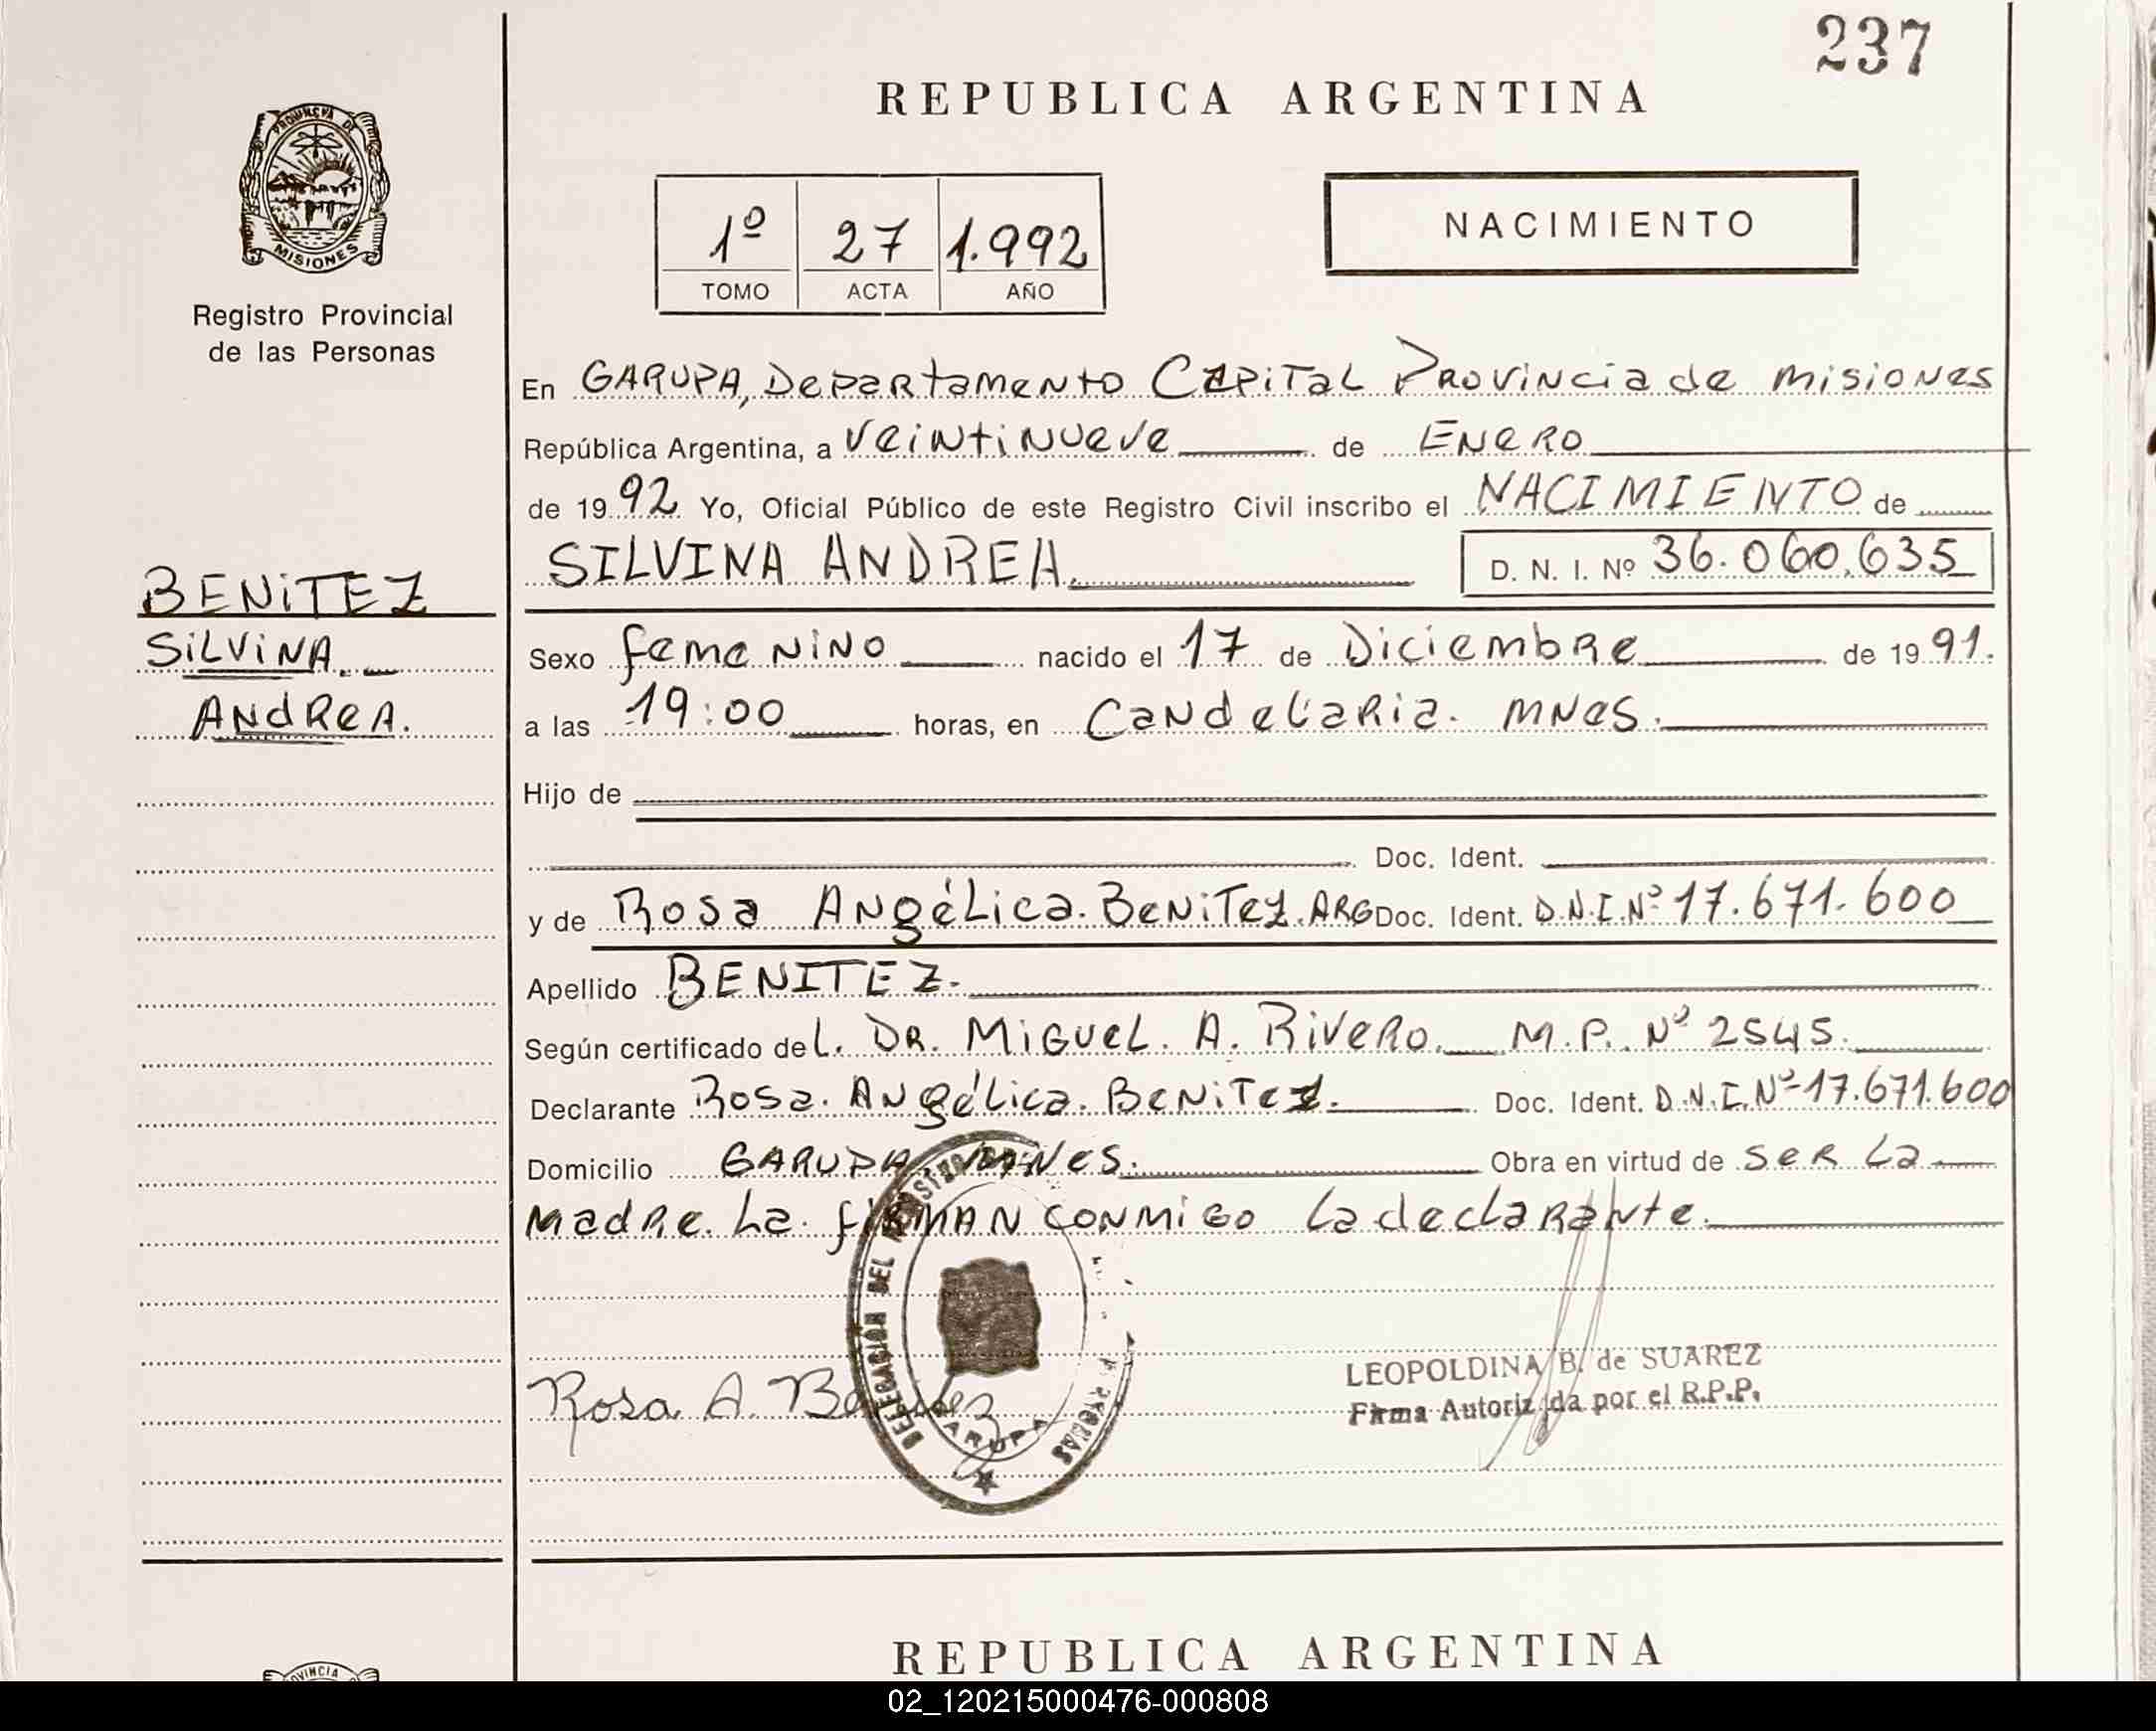 237
REPUBLICA ARGENTINA
PROVINCIA DE
MISIONES
Registro Provincial
de las Personas
1º 27 1.992
TOMO ACTA AÑO
NACIMIENTO
En GARUPA, Departamento Capital Provincia de misiones
República Argentina, a veintinueve de ENERO
de 1992 Yo, Oficial Público de este Registro Civil inscribo el NACIMIENTO de
SILVINA ANDREA. D. N. I. Nº 36.060.635
BENITEZ
SILVINA
ANDREA.
Sexo femenino nacido el 17 de Diciembre de 1991.
a las 19:00 horas, en Candelaria. MNES.
Hijo de
Doc. Ident.
y de Rosa Angélica. Benitez. ARG Doc. Ident. D.N.I.Nº 17.671.600
Apellido BENITEZ.
Según certificado del. DR. MIGUEL. A. RIVERO. M.P. Nº 2545.
Declarante Rosa. Angélica. Benitez. Doc. Ident. D.N.I.Nº 17.671.600
Domicilio GARUPA. MNES. Obra en virtud de ser la
madre. La. firman conmigo la declarante.
DELEGASION DEL
GARUPA
Rosa A. Benitez
LEOPOLDINA B. de SUAREZ
Firma Autorizada por el R.P.P.
REPUBLICA ARGENTINA
02_120215000476-000808